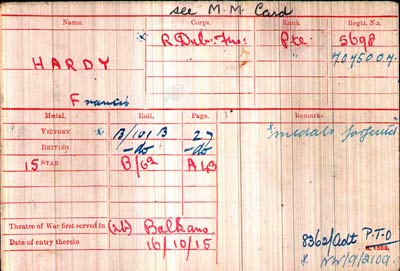 see M.M. Card
Name. Corps. Rank. Regtl. No.
* R. Dub. Fus: Pte 5698
HARDY " " 7075007.
Francis
Medal. Roll. Page. Remarks.
VICTORY * B/101 B 27 Medals forfeited
BRITISH -do- -do-
15 STAR B/62 A43
Theatre of War first served in (2b) Balkans
Date of entry therein 16/10/15
8362/Adt P.T.O
K. 1380.
NW/9/2109.